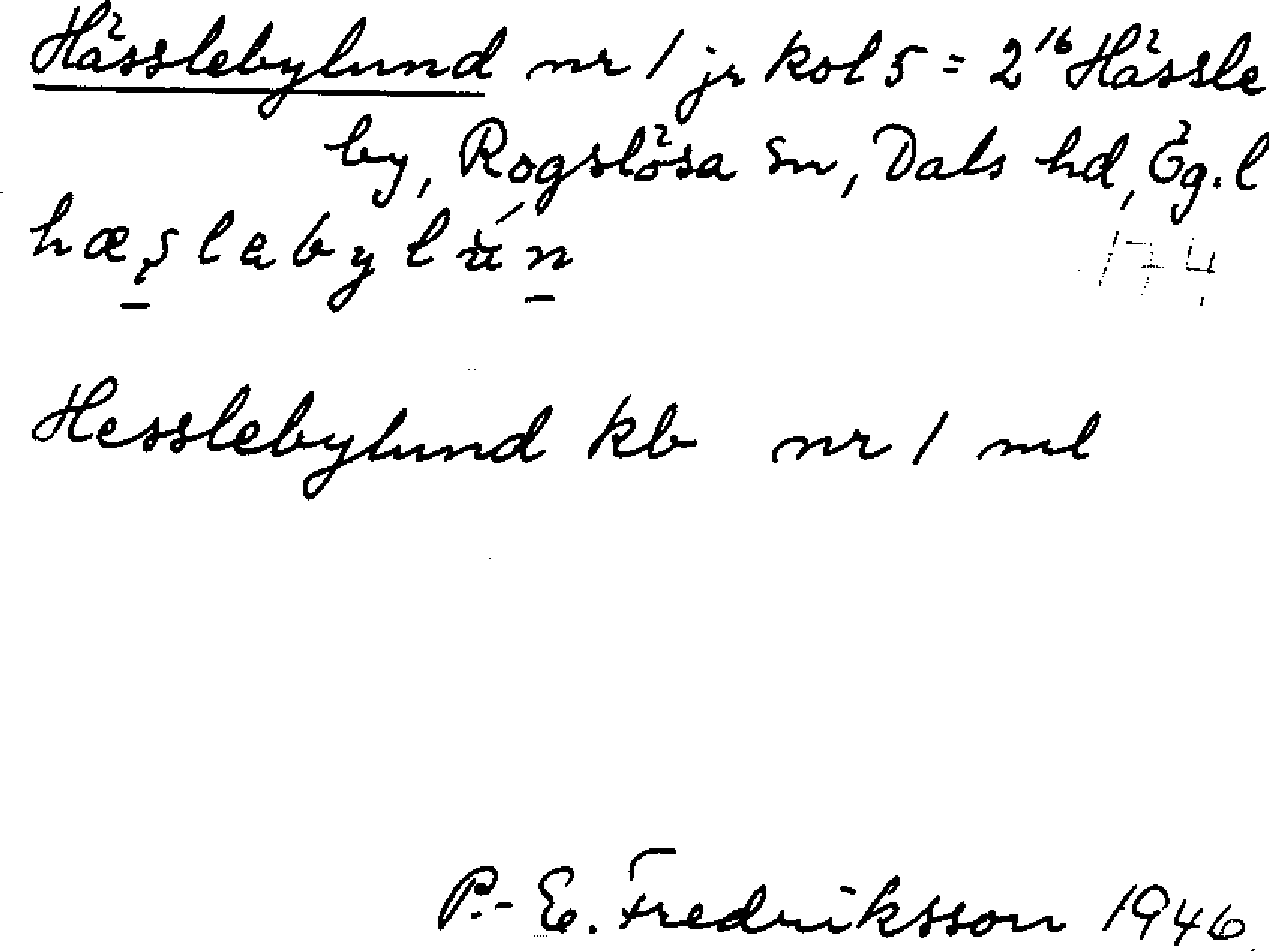 Hässlebylund nr 1 jr kol 5 = 2¹⁶ Hässle
by, Rogslösa sn, Dals hd, Ög. l
hæslebylún
174
Hesslebylund kb nr 1 ml
P.-E. Fredriksson 1946